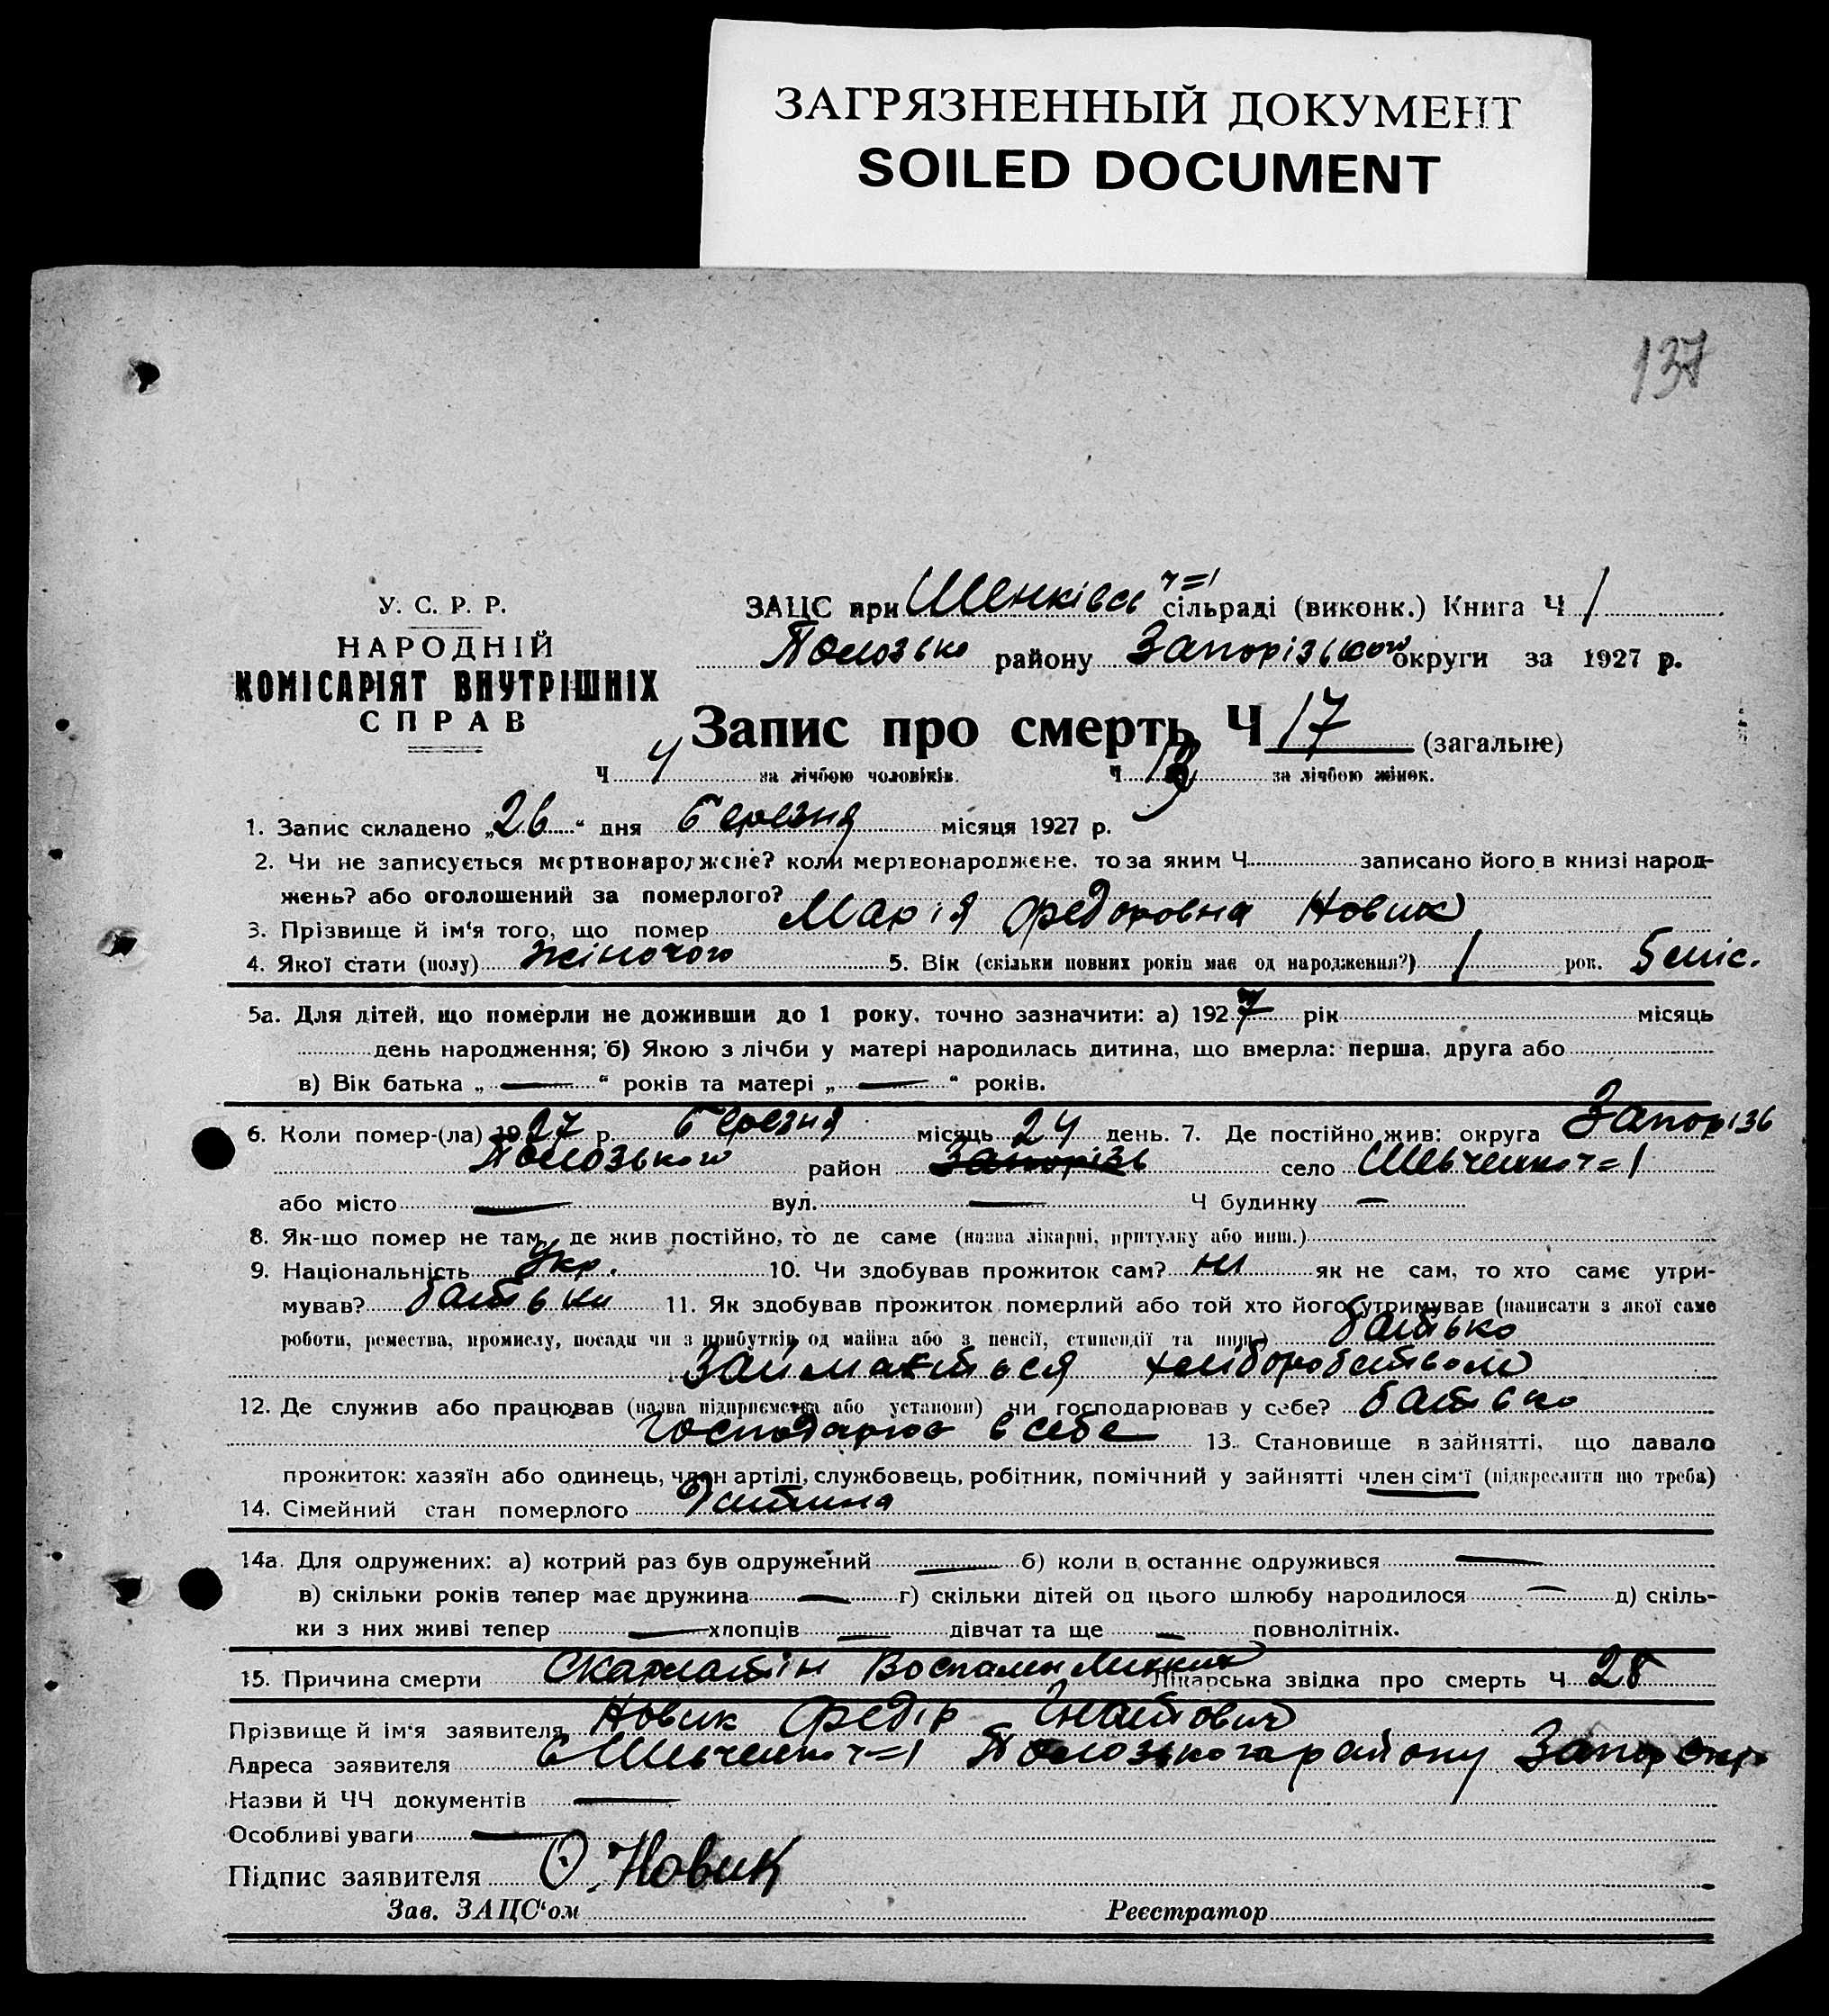 ЗАГРЯЗНЕННЫЙ ДОКУМЕНТ
SOILED DOCUMENT
137
У. С. Р. Р.
НАРОДНІЙ
КОМІСАРІЯТ ВНУТРІШНІХ
СПРАВ
ЗАЦС при Шенківсь ч=1 сільраді (виконк.) Книга Ч 1
Полозько району Запорізькой округи за 1927 р.
Запис про смерть Ч 17 (загальне)
Ч 4 за лічбою чоловіків. Ч 13 за лічбою жінок.
1. Запис складено „26“ дня березня місяця 1927 р.
2. Чи не записується мертвонароджене? коли мертвонароджене, то за яким Ч записано його в книзі народ-
жень? або оголошений за померлого?
3. Прізвище й ім‘я того, що помер Марія Федоровна Новик
4. Якої стати (полу) жіночого 5. Вік (скільки повних років має од народження?) 1 рок. 5 міс.
5а. Для дітей, що померли не доживши до 1 року, точно зазначити: а) 1927 рік місяць
день народження; б) Якою з лічби у матері народилась дитина, що вмерла: перша, друга або
в) Вік батька „ — “ років та матері „ — “ років.
6. Коли помер-(ла) 1927 р. березня місяць 24 день. 7. Де постійно жив: округа Запорізь
Полозького район Запорізь село Шевченко ч=1
або місто — вул. — Ч будинку —
8. Як-що помер не там, де жив постійно, то де саме (назва лікарні, притулку або инш.)
9. Національність Укр. 10. Чи здобував прожиток сам? ні як не сам, то хто саме утри-
мував? батьки 11. Як здобував прожиток померлий або той хто його утримував (написати з якої саме
роботи, ремества, промислу, посади чи з прибутків од майна або з пенсії, стипендії та инш.) батько
займається хліборобством
12. Де служив або працював (назва підприємства або установи) чи господарював у себе? батько
господарює в себе 13. Становище в зайнятті, що давало
прожиток: хазяїн або одинець, член артілі, службовець, робітник, помічний у зайнятті член сім‘ї (підкреслити що треба)
14. Сімейний стан померлого Дитина
14а. Для одружених: а) котрий раз був одружений — б) коли в останнє одружився —
в) скільки років тепер має дружина — г) скільки дітей од цього шлюбу народилося — д) скіль-
ки з них живі тепер — хлопців — дівчат та ще — повнолітніх.
15. Причина смерти Скарлатін Воспален Лікарська звідка про смерть Ч 28
Прізвище й ім‘я заявителя Новик Федір Гнатович
Адреса заявителя с Шевченко ч=1 Полозького району Запор окр
Назви й ЧЧ документів —
Особливі уваги —
Підпис заявителя Ф. Новик
Зав. ЗАЦС‘ом Реєстратор